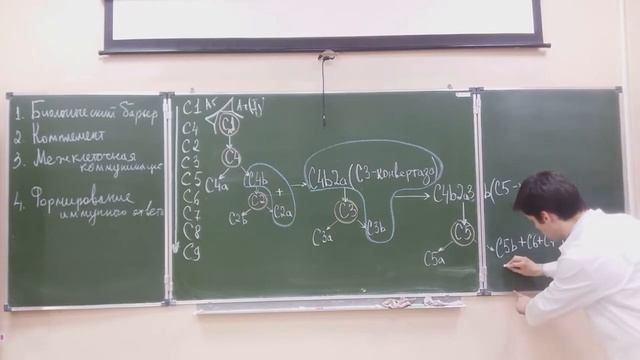 1. Биологический барьер
2. Комплемент
3. Межклеточная
коммуникация
4. Формирование
иммунного ответа
C1
C4
C2
C3
C5
C6
C7
C8
C9
C1
C4
C4a
C4b
C2
C2b
C2a
+
C4b2a (C3-конвертаза)
C3
C3a
C3b
C4b2a3b (C5-
C5
C5a
C5b + C6 +